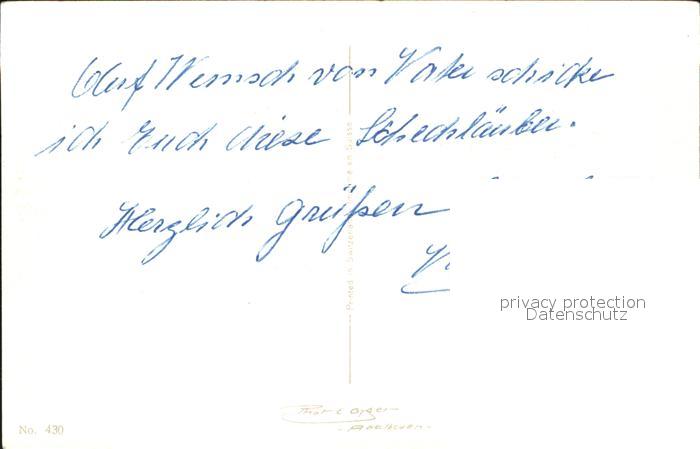 Auf Wunsch von Vater schicke
ich Euch diese
Herzlich Grüßen
V.
Printed in Switzerland
privacy protection
Datenschutz
No. 430